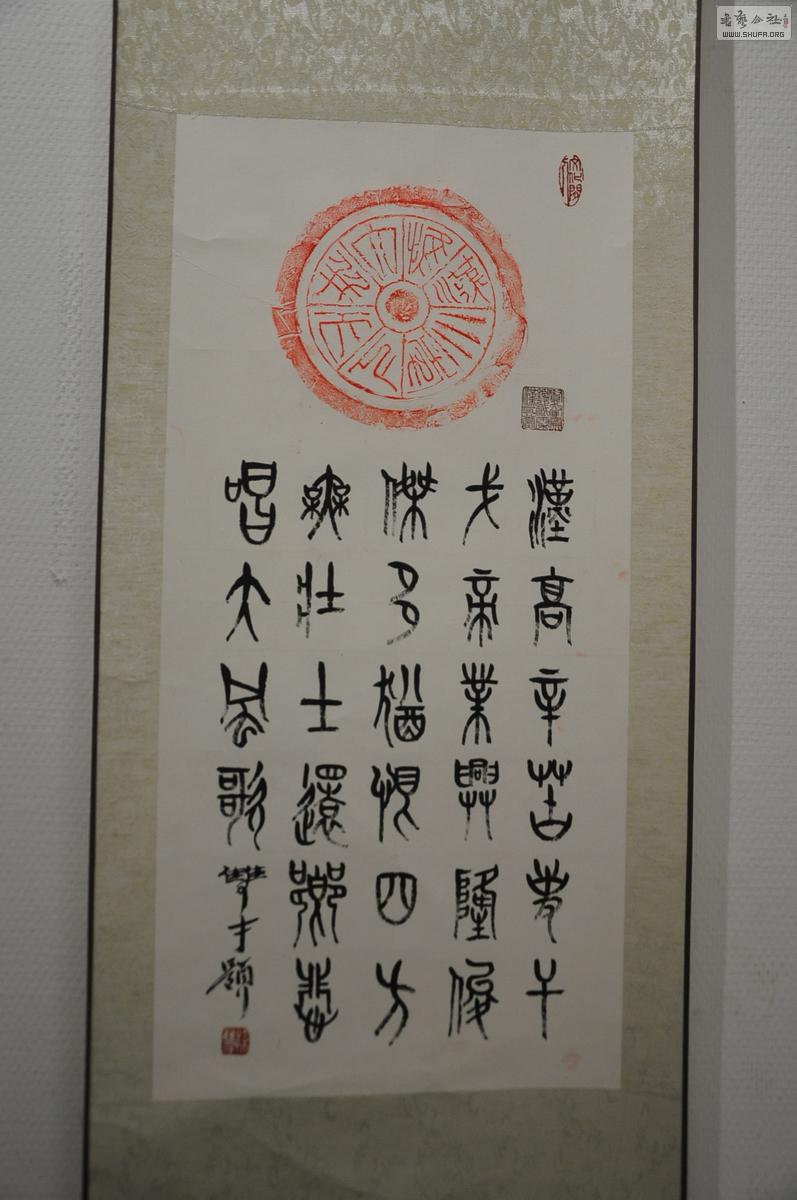 漢高辛苦事干
戈帝業興隆俊
傑多猶恨四方
無壯士還鄉悲
唱大風歌 雙才題
書藝公社
WWW.SHUFA.ORG